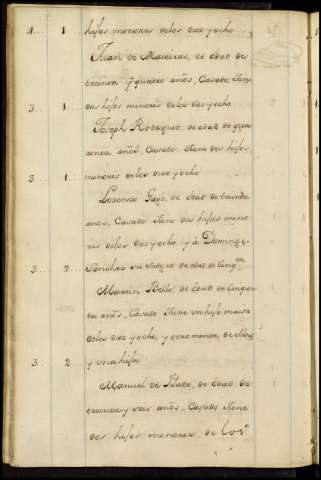 4 1 hijos menores delos diez y ocho
Juan de Maceiras, de edad de
treinta y quatro años, Casado, tiene
3 1 dos hijos menores delos diez y ocho
Joseph Rodriguez de edad de qua
renta años, Casado tiene dos hijos
3 1 menores delos diez y ocho
Lorenzo Gago, de edad de treinta
años, Casado tiene dos hijos meno
res delos diez y ocho y a Domingo
3 2 Sanchez su de edad de
Martin Bello, de edad de cinquen
ta años, Casado tiene un hijo maior
delos diez y ocho, y otro menor, de ellos
3 2 y una hija
Manuel de Prado, de edad de
treinta y seis años Casado tiene
dos hijos menores, de los